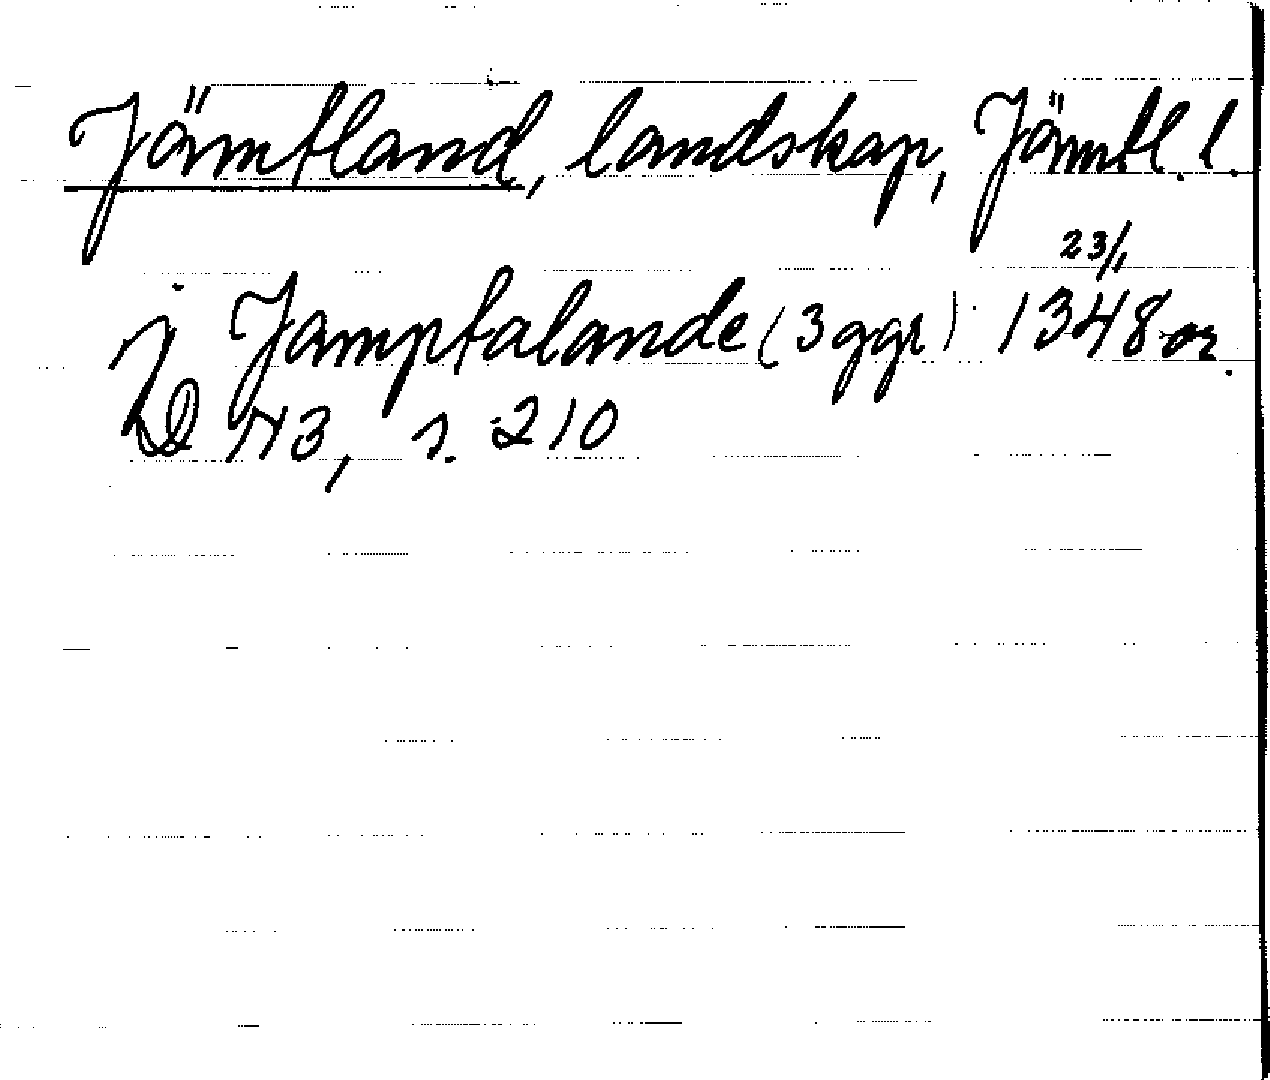 Jämtland, landskap, Jämtl. l.
j Jamptalande (3 ggr) 1348 23/1 or.
D 143, s. 210